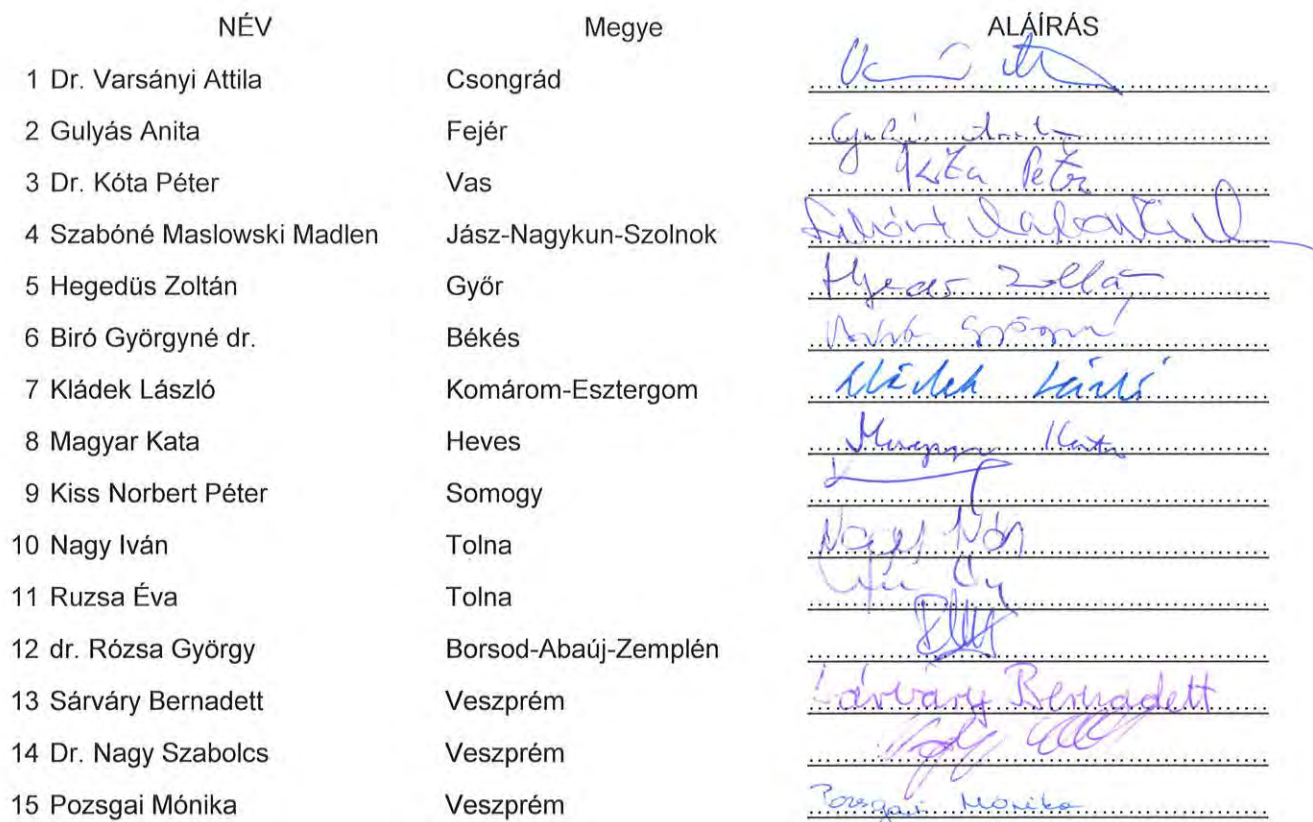 NÉV Megye ALÁÍRÁS
1 Dr. Varsányi Attila Csongrád
2 Gulyás Anita Fejér
3 Dr. Kóta Péter Vas Kóta Péter
4 Szabóné Maslowski Madlen Jász-Nagykun-Szolnok
5 Hegedüs Zoltán Győr Hegedüs Zoltán
6 Biró Györgyné dr. Békés
7 Kládek László Komárom-Esztergom Kládek László
8 Magyar Kata Heves Magyar Kata
9 Kiss Norbert Péter Somogy
10 Nagy Iván Tolna Nagy Iván
11 Ruzsa Éva Tolna
12 dr. Rózsa György Borsod-Abaúj-Zemplén
13 Sárváry Bernadett Veszprém Sárváry Bernadett
14 Dr. Nagy Szabolcs Veszprém
15 Pozsgai Mónika Veszprém Pozsgai Mónika